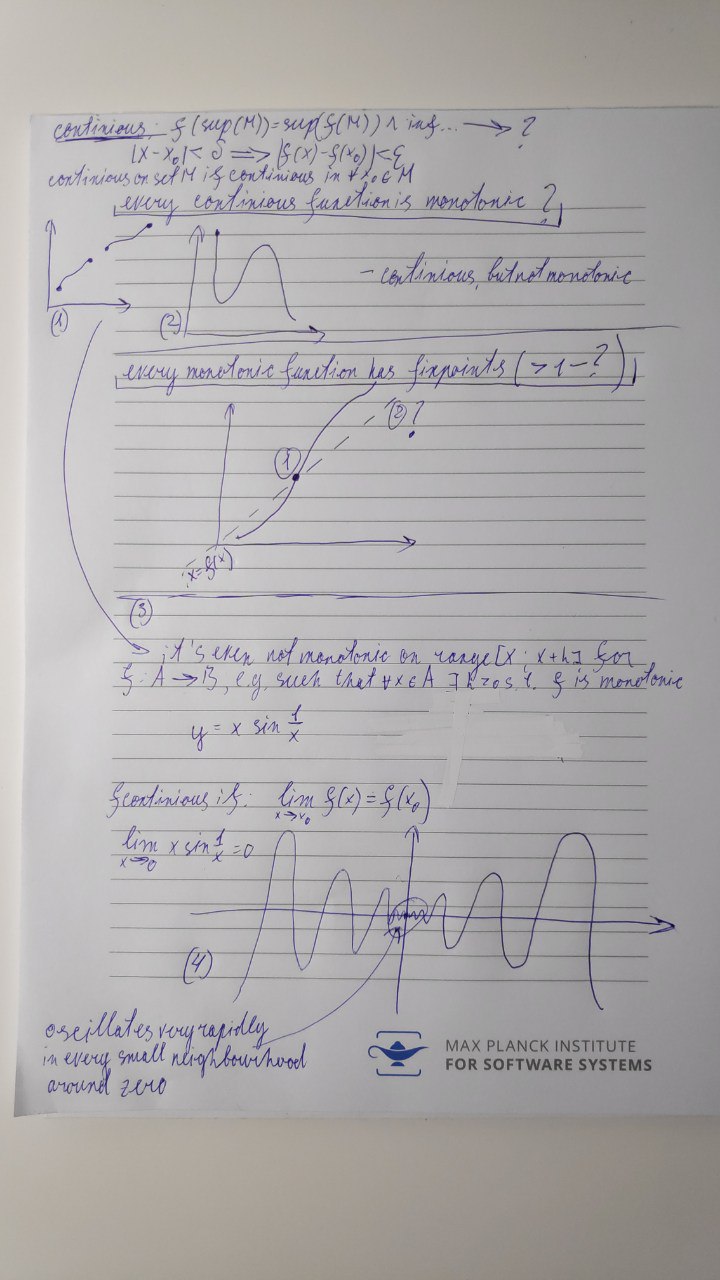 continious: f(sup(M))=sup(f(M)) ∧ inf... → ?
|x-x₀|< δ ⟹ |f(x)-f(x₀)|<ε
continious on set M if continious in ∀ x₀∈M
every continious function is monotonic ?
(1)
(2)
- continious, but not monotonic
every monotonic function has fixpoints (>1-?)
(2)?
(1)
x=f(x)
(3)
it's even not monotonic on range [x ; x+h] for
f: A → B, e.g. such that ∀x∈A ∃ h>0 s.t. f is monotonic
y = x sin 1/x
f continious if: lim x→x₀ f(x) = f(x₀)
lim x→0 x sin 1/x = 0
(4)
oscillates very rapidly
in every small neighbourhood
around zero
MAX PLANCK INSTITUTE
FOR SOFTWARE SYSTEMS